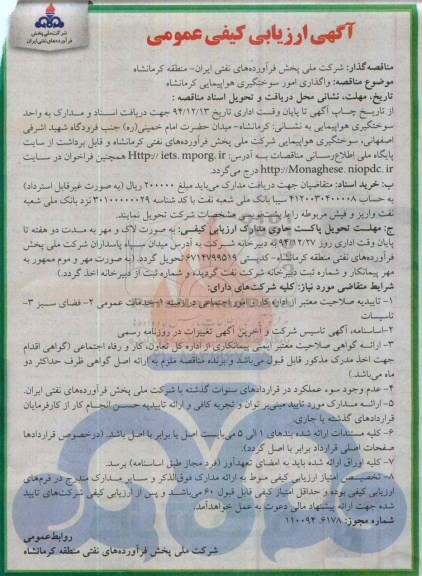 شرکت ملی پخش
فرآورده‌های نفتی ایران
آگهی ارزیابی کیفی عمومی
مناقصه‌گذار: شرکت ملی پخش فرآورده‌های نفتی ایران- منطقه کرمانشاه
موضوع مناقصه: واگذاری امور سوختگیری هواپیمایی کرمانشاه
تاریخ، مهلت، نشانی محل دریافت و تحویل اسناد مناقصه :
از تاریخ چاپ آگهی تا پایان وقت اداری تاریخ ۹۴/۱۲/۱۳ جهت دریافت اسناد و مدارک به واحد
سوختگیری هواپیمایی به نشانی: کرمانشاه- میدان حضرت امام خمینی(ره) جنب فرودگاه شهید اشرفی
اصفهانی، سوختگیری هواپیمایی شرکت ملی پخش فرآورده‌های نفتی کرمانشاه و قابل برداشت از سایت
پایگاه ملی اطلاع‌رسانی مناقصات به آدرس: Http:// iets. mporg. ir همچنین فراخوان در سایت
http://Monaghese. niopdc. ir درج می‌گردد.
ب: خرید اسناد: متقاضیان جهت دریافت مدارک می‌باید مبلغ ۲۰۰۰۰۰ ریال (به صورت غیرقابل استرداد)
به حساب ۴۱۲۰۰۳۰۴۰۰۰۰۸ سیبا بانک ملی شعبه نفت با کد شناسه ۳۰۱۰۰۰۰۰۰۰۲۹ نزد بانک ملی شعبه
نفت واریز و فیش مربوطه را با پشت‌نویسی مشخصات شرکت تحویل نمایند.
ج: مهلت تحویل پاکت حاوی مدارک ارزیابی کیفی: به صورت لاک و مهر به مدت دو هفته تا
پایان وقت اداری روز ۹۴/۱۲/۲۷ به دبیرخانه شرکت به آدرس میدان سپاه پاسداران شرکت ملی پخش
فرآورده‌های نفتی منطقه کرمانشاه- کدپستی ۶۷۱۴۷۹۹۵۱۹ تحویل گردد. (به صورت مهر و موم ممهور به
مهر پیمانکار و شماره ثبت دبیرخانه شرکت نفت گردیده و شماره ثبت از دبیرخانه اخذ گردد.)
شرایط متقاضی مورد نیاز: کلیه شرکت‌های دارای:
۱- تاییدیه صلاحیت معتبر از اداره کار و امور اجتماعی در رسته ۱- خدمات عمومی ۲- فضای سبز ۳-
تاسیسات
۲- اساسنامه، آگهی تاسیس شرکت و آخرین آگهی تغییرات در روزنامه رسمی
۳- ارائه گواهی صلاحیت معتبر ایمنی پیمانکاری از اداره کل تعاون، کار و رفاه اجتماعی (گواهی اقدام
جهت اخذ مدرک مذکور قابل قبول می‌باشد و برنده مناقصه ملزم به ارائه اصل گواهی ظرف حداکثر دو
ماه می‌باشد.)
۴- عدم وجود سوء عملکرد در قراردادهای سنوات گذشته با شرکت ملی پخش فرآورده‌های نفتی ایران.
۵- ارائه مدارک مورد تایید مبنی بر توان و تجربه کافی و ارائه تاییدیه حسن انجام کار از کارفرمایان
قراردادهای گذشته یا جاری.
۶- کلیه مستندات ارائه شده بندهای ۱ الی ۵ می‌بایست اصل یا برابر با اصل باشد. (در خصوص قراردادها
صفحات اصلی قرارداد برابر با اصل گردد).
۷- کلیه اوراق ارائه شده باید به امضای تعهدآور (فرد مجاز طبق اساسنامه) برسد.
۸- تخصیص امتیاز ارزیابی کیفی منوط به ارائه مدارک فوق‌الذکر و سایر مدارک مندرج در فرم‌های
ارزیابی کیفی بوده و حداقل امتیاز کیفی قابل قبول ۶۰ می‌باشد و پس از ارزیابی کیفی شرکت‌های تایید
شده جهت ارائه پیشنهاد مالی دعوت به عمل خواهد آمد.
شماره مجوز: ۶۱۷۸. ۱۱۰۰۹۲
روابط عمومی
شرکت ملی پخش فرآورده‌های نفتی منطقه کرمانشاه